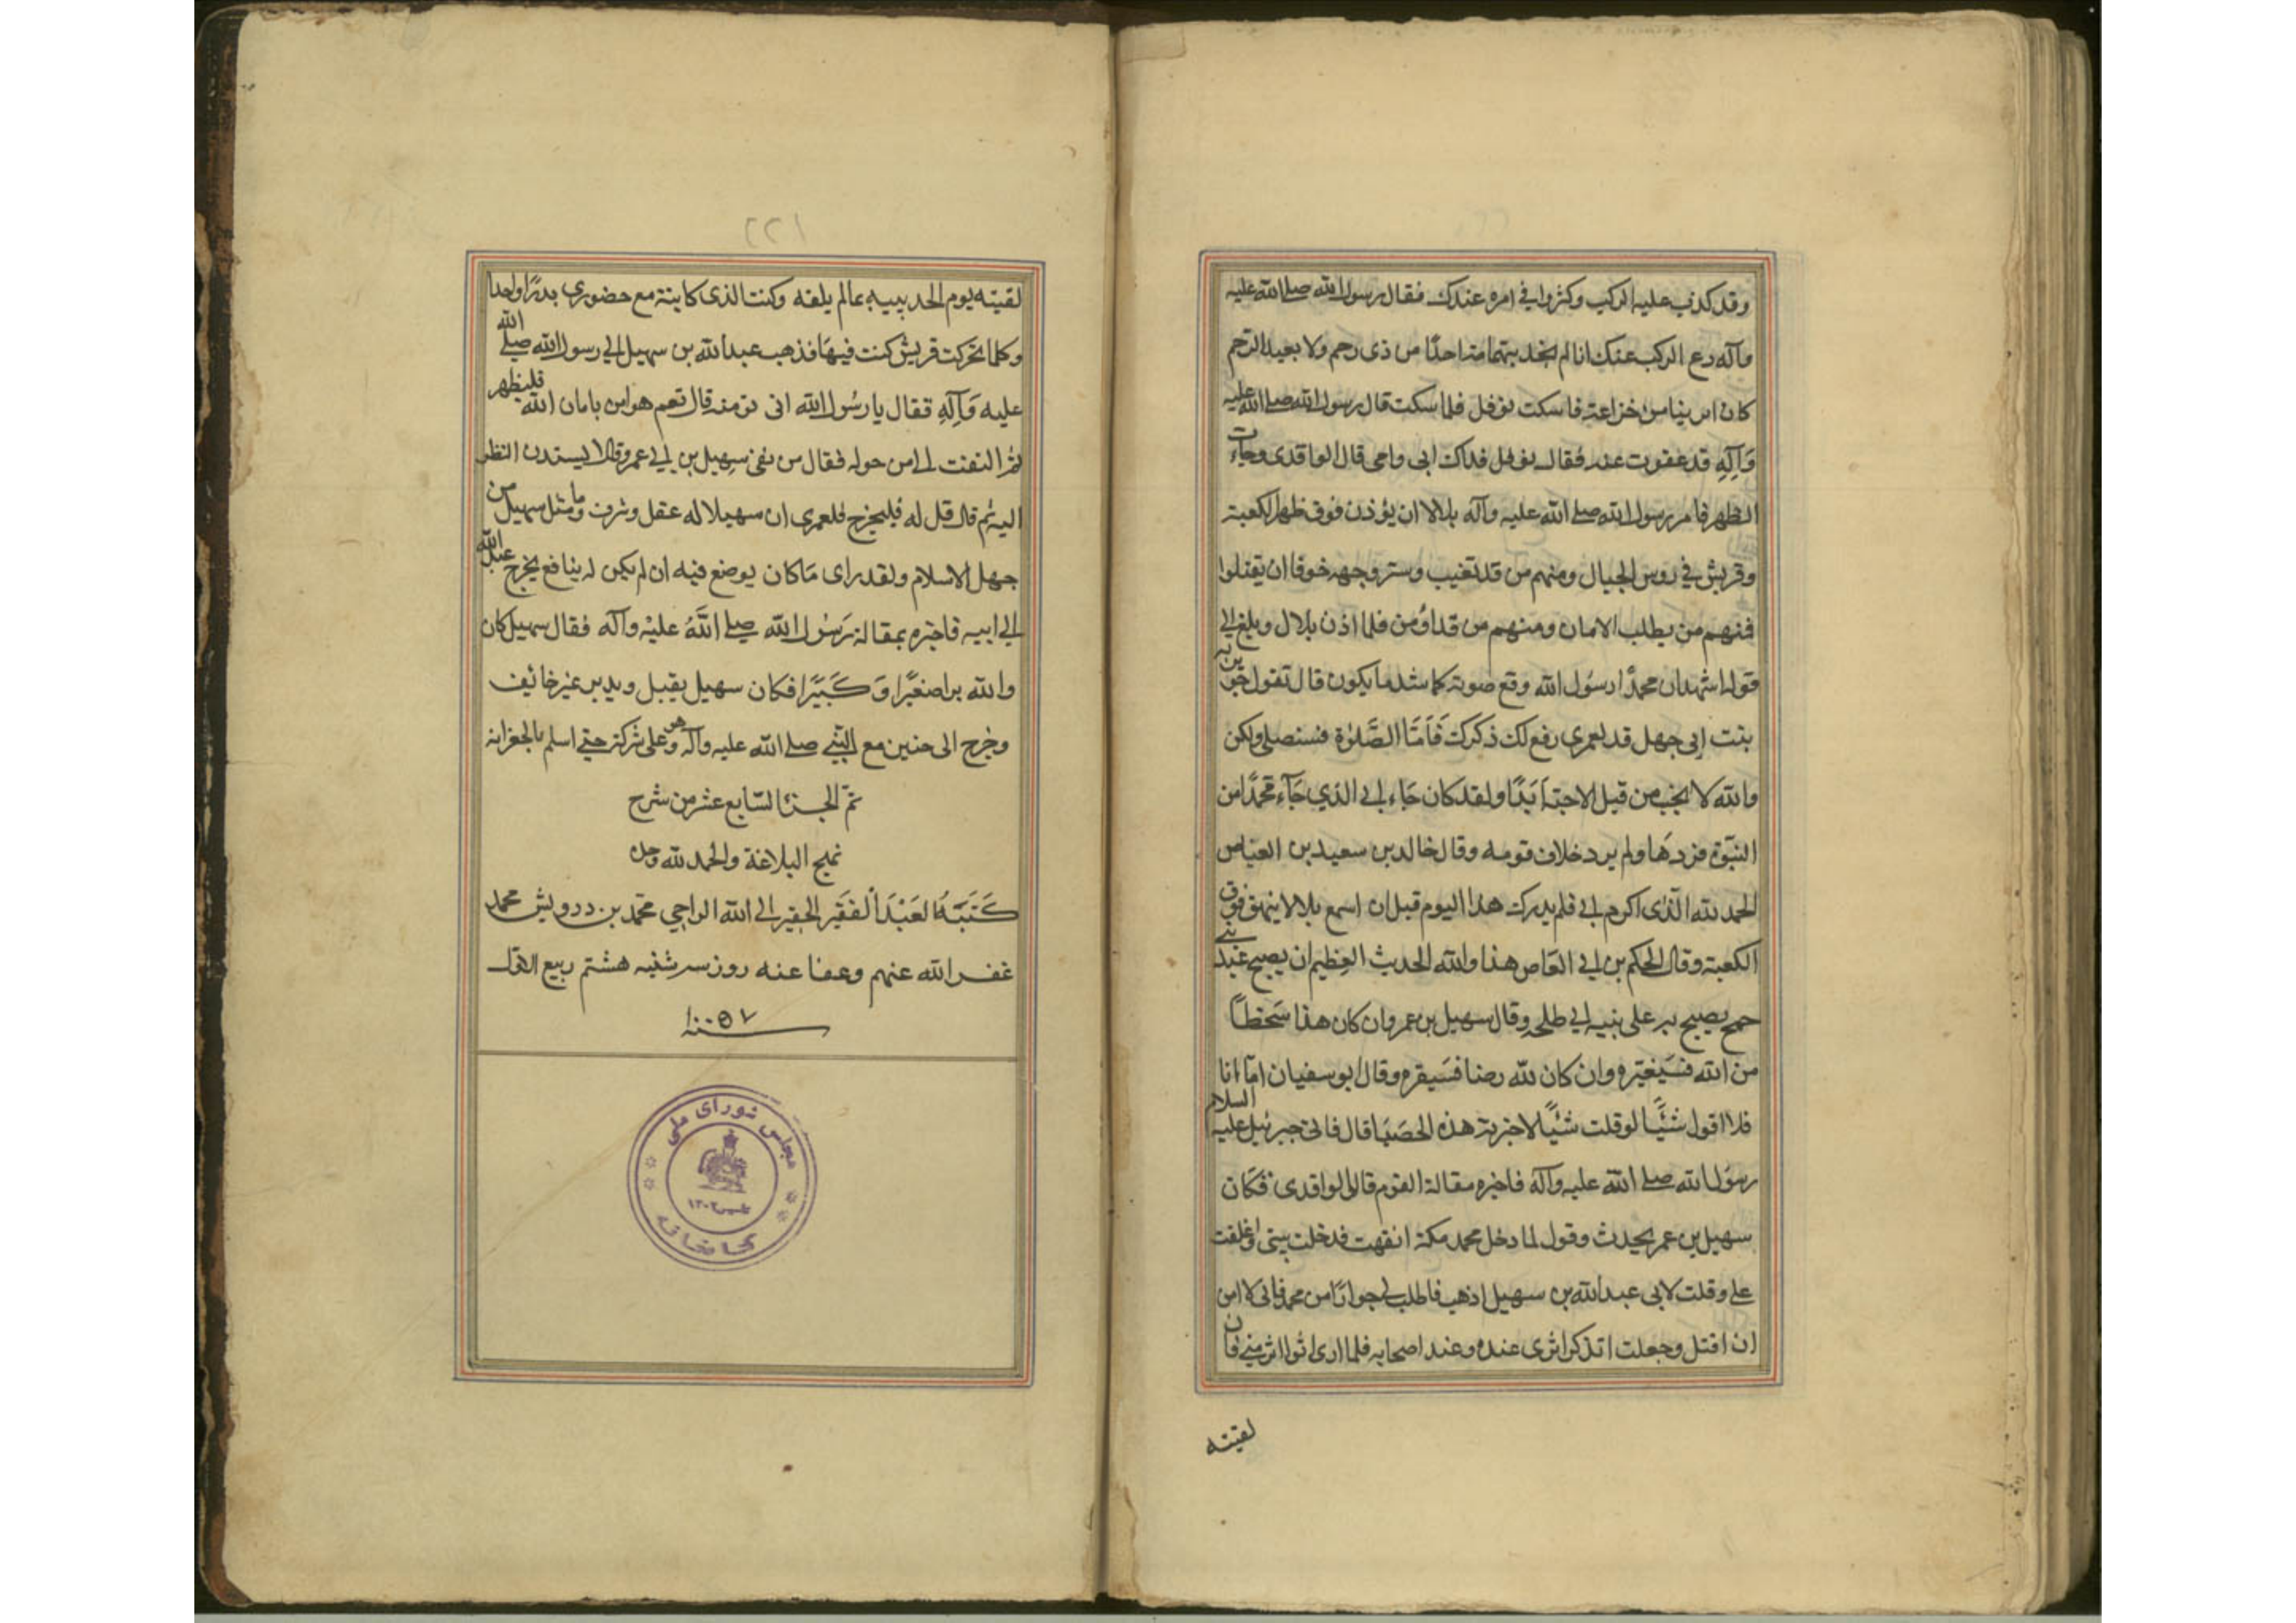 وقد كذب عليه الركب وكثروا في امره عندك فقال رسول الله صلى الله عليه
وآله دع الركب عنك انا لم نجد بتهامة احدًا من ذى رحم ولا بعيد الرحم
كان ابر بنا من خزاعة فاسكت نوفل فلما سكت قال رسول الله صلى الله عليه
وَآلِهِ قد عفوت عنه فقال نوفل فداك ابى وامى قال الواقدى وجاءت
الظهر فامر رسول الله صلى الله عليه وآله بلالا ان يؤذن فوق ظهر الكعبة
وقريش في روس الجبال ومنهم من قد تغيب وستر وجهه خوفا ان يقتلوا
فمنهم من يطلب الامان ومنهم من قد اؤمن فلما اذن بلال وبلغ الى
قوله اشهد ان محمدًا رسول الله رفع صوته كاشد ما يكون قال تقول جويرية
بنت ابى جهل قد لعمرى رفع لك ذكرك فَاَمَّا الصَّلوٰة فسنصلى ولكن
والله لا نحب من قتل الاحبة اَبَدًا ولقد كان جَاء ابى الذي جَآء محمدًا من
النبّوة فردهَا ولم يرد خلاف قومه وقال خالد بن سعيد بن العاص
الحمد لله الّذى اكرم ابي فلم يدرك هذا اليوم قبل ان اسمع بلالا ينهق فوق
الكعبة وقال الحكم بن ابي العاص هذا والله الحديث العظيم ان يصيح عبد بنى
جمح يصيح به على بنيه ابي طلحة وقال سهيل بن عمر وان كان هذا سَخطاً
من الله فسَيغيّره وان كان لله رضا فسَيقره وقال ابو سفيان امّا انا
فلا اقول شَئًا لو قلت شئًا لاخبرته هذه الحصَبَا قال فاتى جبرئيل عليه السلام
رسول الله صلى الله عليه وآله فاخبره مقالة القوم قال الواقدى فكَان
سهيل بن عمر يحدث وقول لما دخل محمد مكة انقهت فدخلت بيتى واغلقت
على وقلت لابى عبد الله بن سهيل اذهب فاطلب لي جوارًا من محمد فانى لا امن
ان اقتل وجعلت اتذكر اثرى عنده وعند اصحابه فلما ارى اثوا اثر منى فان
لقيته
٢٢١
لقيته يوم الحديبيه بما لم يلقه وكنت الذى كاتبته مع حضورى بدرًا واحدا
وكلما تحركت قريش كنت فيهَا فذهب عبد الله بن سهيل الى رسول الله صلى الله
عليه وَآلِهِ فقال يا رسُول الله ابى تؤمنه قال نعم هو امن بامان الله فليظهر
ثمر التفت الى من حوله فقال من لقى سهيل بن ابي عمرو فلا يشتدن النظر
اليه ثم قال قل له فليخرج فلعمرى ان سهيلا له عقل وشرف وما مثل سهيل من
جهل الاسلام ولقد راى مَا كان يوضع فيه ان لم يكن له بنافع فخرج عبد الله
الى ابيه فاخبره بمقالة رَسُول الله صلى اللَّه عليْه وآله فقال سهيل كان
والله برا صغيًرا وَكَبيًرا فكان سهيل يقبل ويدبر غير خائف
وخرج الى حنين مع النّبي صلى الله عليه وآله وهو على شركه حتى اسلم بالجعرانه
تمّ الجزء السّابع عشر من شرح
نهج البلاغة والحمد لله وحده
كَتَبَهُ العَبْدَ ألفقير الحقير الى الله الراجي محمّد بن درويش محمد
غفر الله عنهم وعفا عنه روز سه شنبه هشتم ربيع الاول
سنه ١٠٥٧
مجلس شورای ملی
تاسیس ۱۳۰۲
کتابخانه